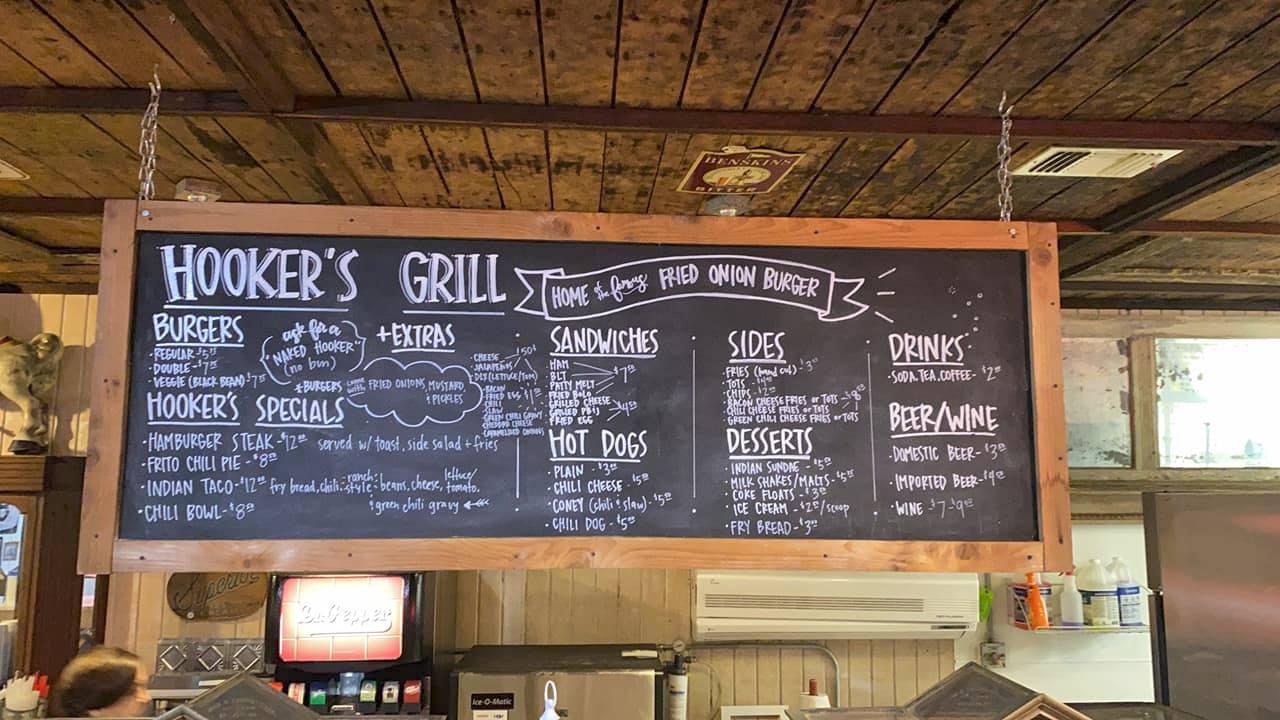 BENSKINS
BITTER
HOOKER'S GRILL
HOME of the famous FRIED ONION BURGER
BURGERS
• REGULAR - $5
• DOUBLE - $7
• VEGGIE (BLACK BEAN) $7
ask for a
"NAKED HOOKER"
(no bun)
+EXTRAS
+BURGERS come with FRIED ONIONS, MUSTARD
+ PICKLES
• CHEESE 50¢
JALAPENOS
DLX (LETTUCE/TOM)
• BACON
FRIED EGG $1
CHILI
SLAW
GREEN CHILI GRAVY
CHEDDAR CHEESE
CARAMELIZED ONIONS
HOOKER'S SPECIALS
• HAMBURGER STEAK - $12 served w/ toast, side salad + fries
• FRITO CHILI PIE - $8
• INDIAN TACO - $12 fry bread, chili, ranch style beans, cheese, lettuce/ tomato,
+ green chili gravy
• CHILI BOWL - $8
SANDWICHES
HAM
BLT
PATTY MELT
$7
FRIED BOLO
GRILLED CHEESE
GRILLED PB+J
FRIED EGG
HOT DOGS
• PLAIN - $3
• CHILI CHEESE - $5
• CONEY (chili + slaw) - $5
• CHILI DOG - $5
SIDES
FRIES (hand cut) - $3
TOTS
CHIPS
BACON CHEESE FRIES or TOTS
CHILI CHEESE FRIES or TOTS
GREEN CHILI CHEESE FRIES or TOTS
DESSERTS
• INDIAN SUNDAE - $5
• MILK SHAKES/MALTS - $5
• COKE FLOATS - $3
• ICE CREAM - $2/scoop
• FRY BREAD - $3
DRINKS
• SODA, TEA, COFFEE - $2
BEER/WINE
• DOMESTIC BEER - $3
• IMPORTED BEER - $4
• WINE - $7-$9
Superior
Dr Pepper
Ice-O-Matic